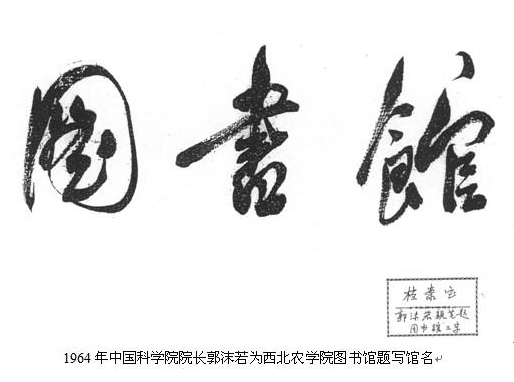 圖書館
檔案室
郭沫若親筆題
图书馆三字
1964年中国科学院院长郭沫若为西北农学院图书馆题写馆名